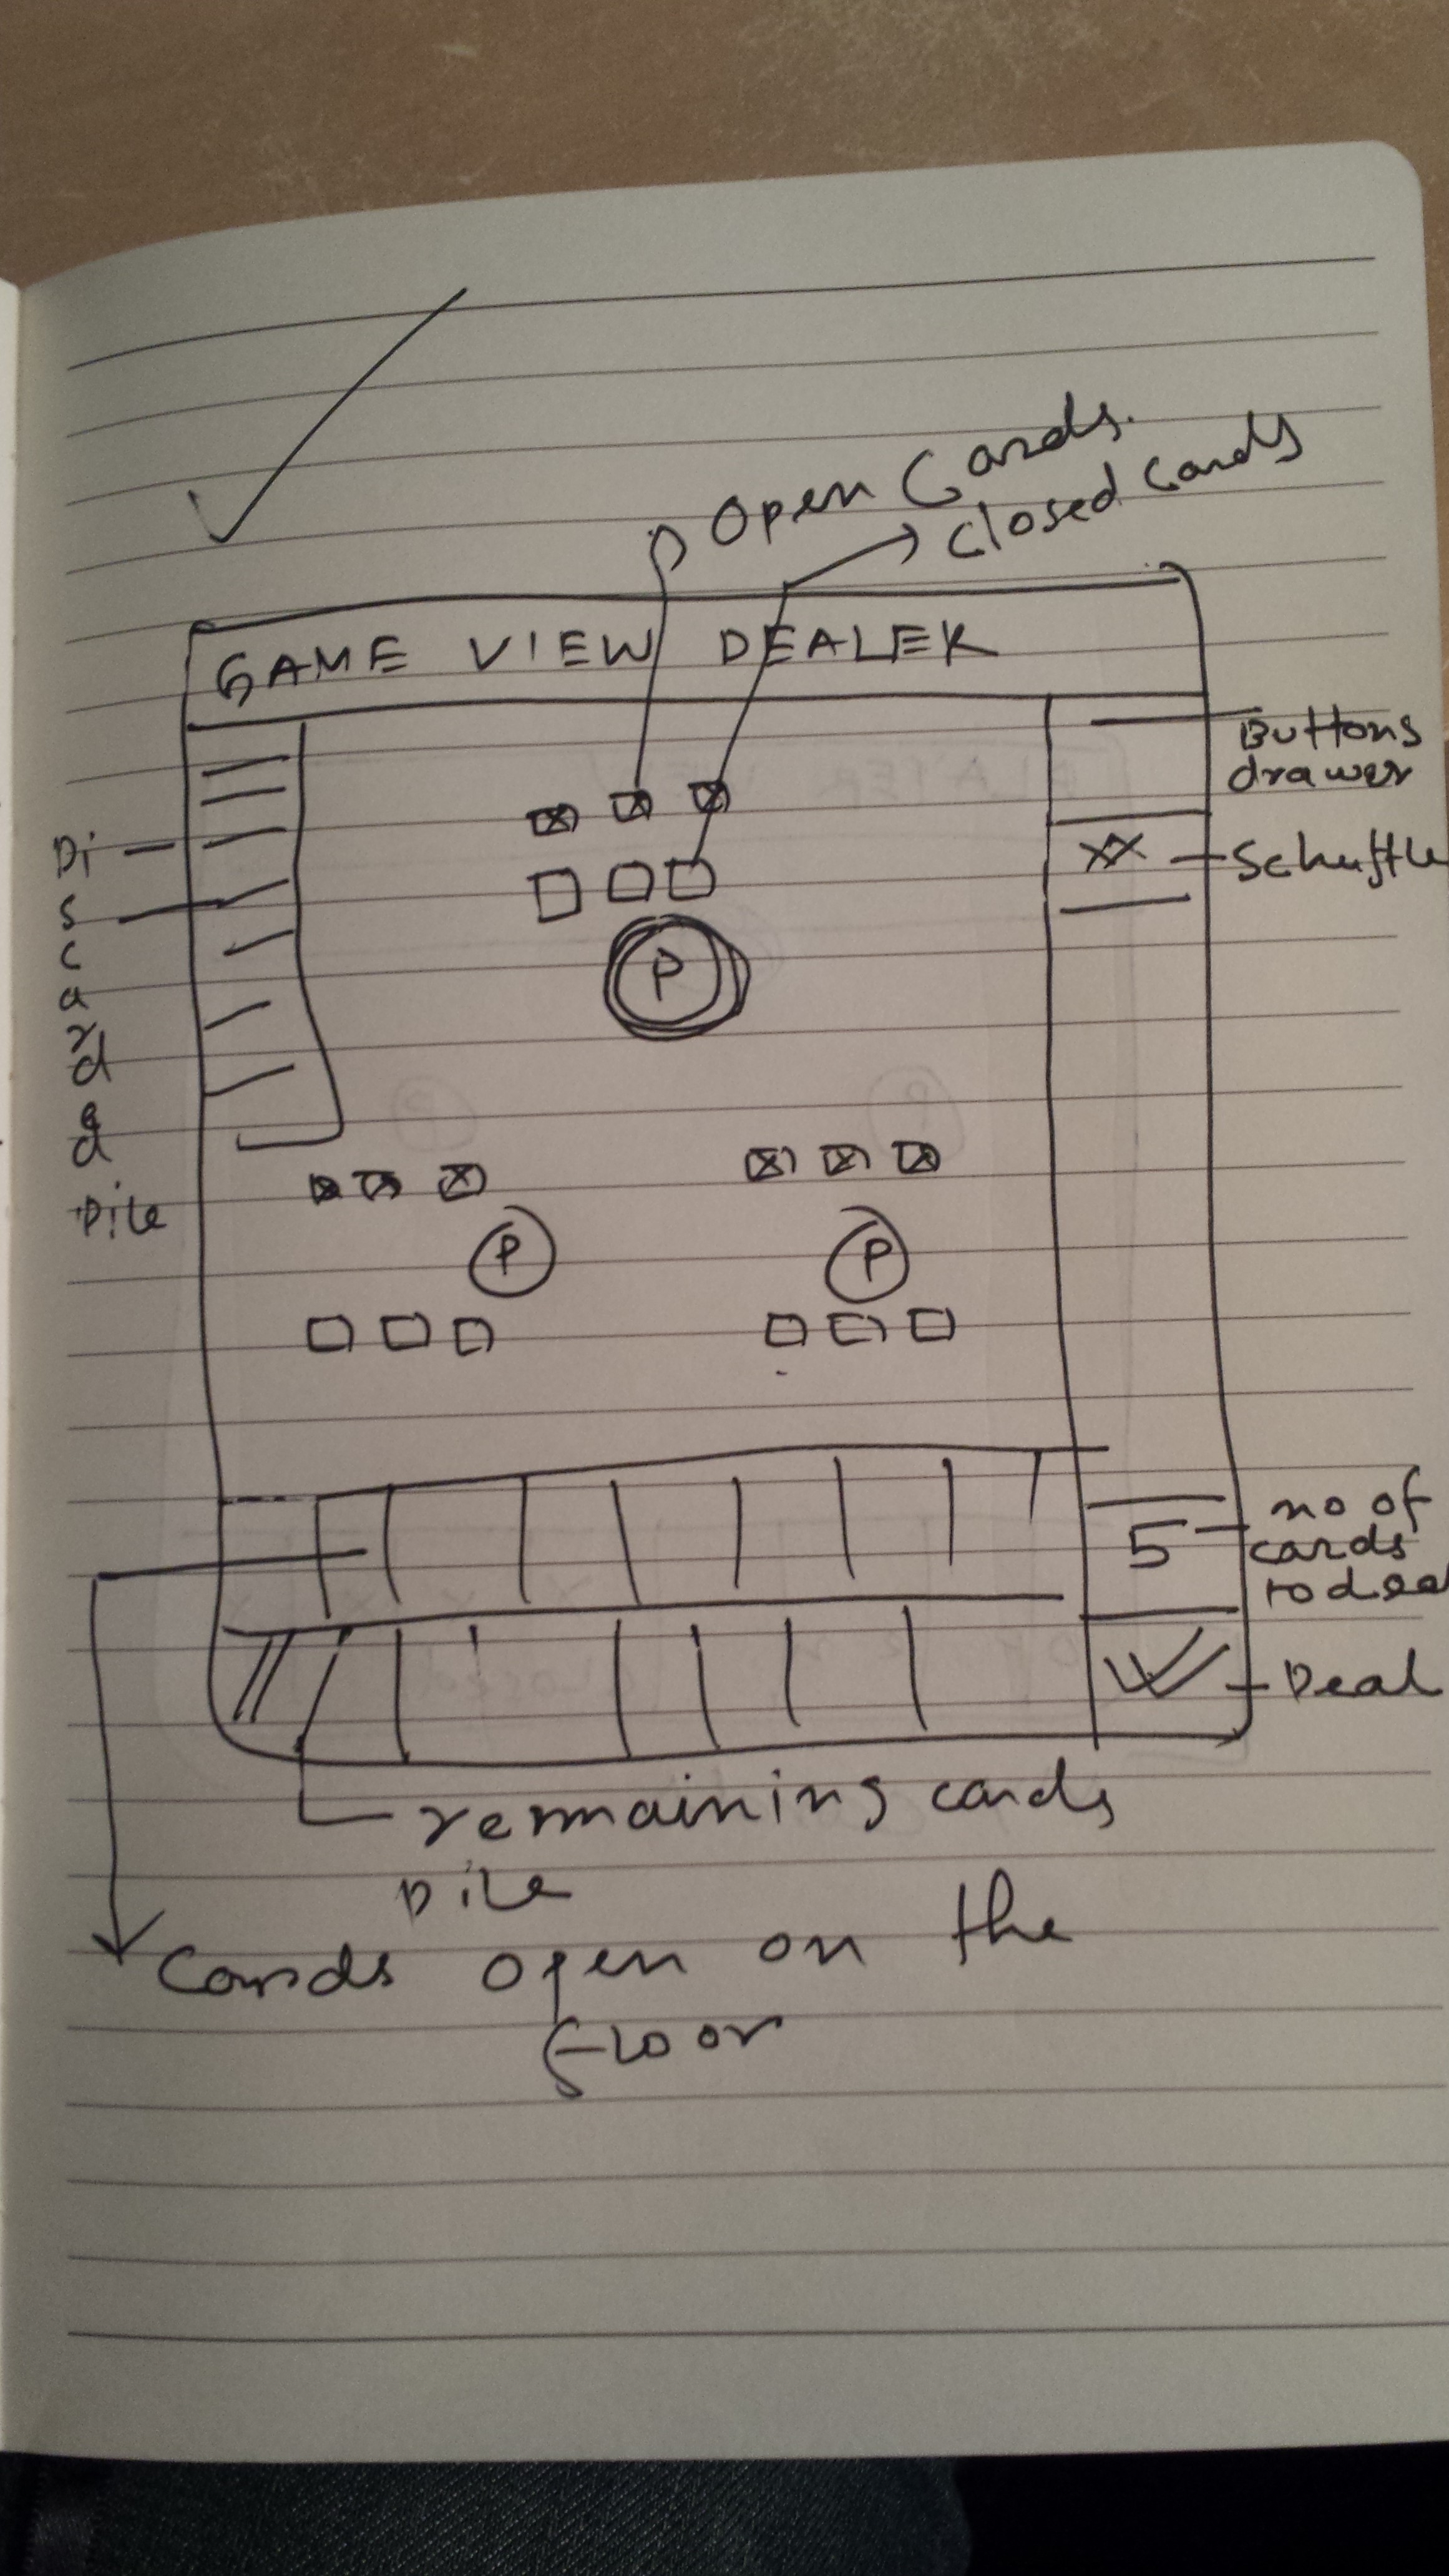 Open Cards.
closed cards
GAME VIEW DEALER
Buttons
drawer
XX
Schuffle
Di
s
c
a
r
d
e
d
Pile
P
P
P
5
no of
cards
to deal
Deal
remaining cards
pile
Cards open on the
floor